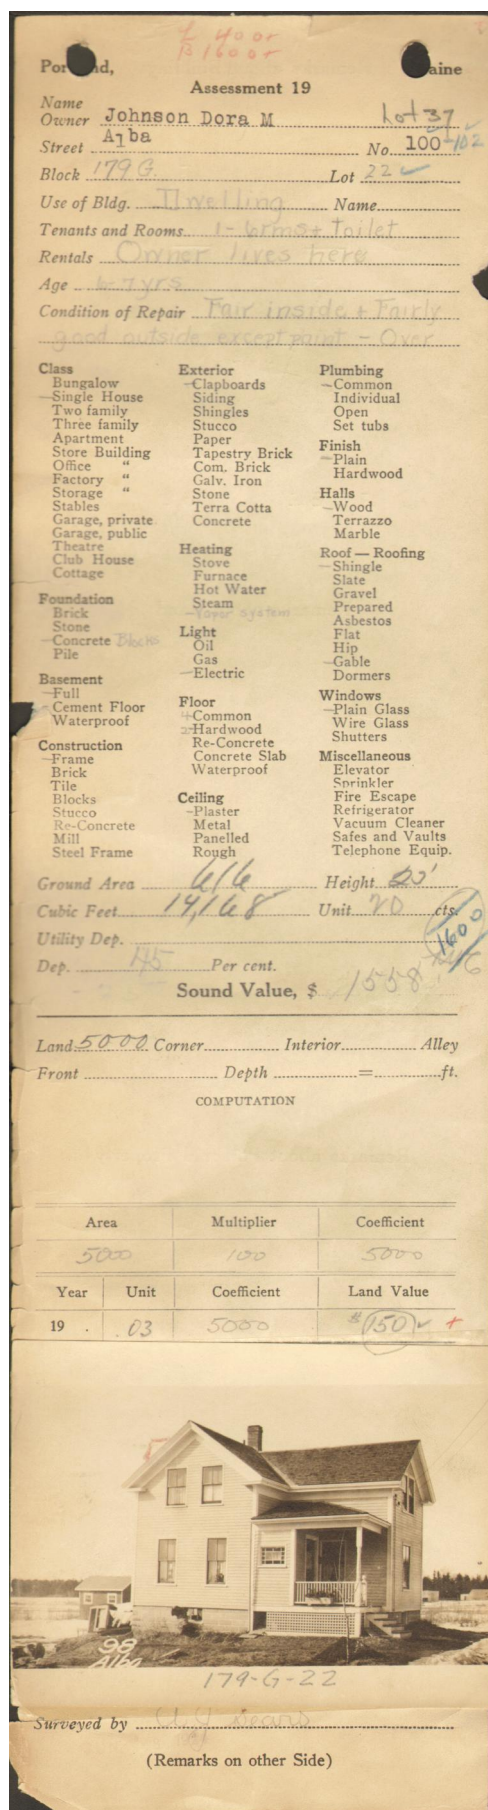 L 400+
B 1600+
Portland, Maine
Assessment 19
Name
Owner Johnson Dora M Lot 37
Street Alba No. 100-102
Block 179 G. Lot 22
Use of Bldg. Dwelling Name
Tenants and Rooms 1-6rms + Toilet
Rentals Owner lives here
Age 6-7 yrs
Condition of Repair Fair inside + Fairly
good outside except paint - Over
Class
Bungalow
Single House
Two family
Three family
Apartment
Store Building
Office "
Factory "
Storage "
Stables
Garage, private
Garage, public
Theatre
Club House
Cottage
Foundation
Brick
Stone
Concrete Blocks
Pile
Basement
Full
Cement Floor
Waterproof
Construction
Frame
Brick
Tile
Blocks
Stucco
Re-Concrete
Mill
Steel Frame
Exterior
Clapboards
Siding
Shingles
Stucco
Paper
Tapestry Brick
Com. Brick
Galv. Iron
Stone
Terra Cotta
Concrete
Heating
Stove
Furnace
Hot Water
Steam
Vapor system
Light
Oil
Gas
Electric
Floor
Common
Hardwood
Re-Concrete
Concrete Slab
Waterproof
Ceiling
Plaster
Metal
Panelled
Rough
Plumbing
Common
Individual
Open
Set tubs
Finish
Plain
Hardwood
Halls
Wood
Terrazzo
Marble
Roof — Roofing
Shingle
Slate
Gravel
Prepared
Asbestos
Flat
Hip
Gable
Dormers
Windows
Plain Glass
Wire Glass
Shutters
Miscellaneous
Elevator
Sprinkler
Fire Escape
Refrigerator
Vacuum Cleaner
Safes and Vaults
Telephone Equip.
Ground Area 616 Height 23'
Cubic Feet 14,168 Unit 20 cts.
Utility Dep. 1600
Dep. 45 Per cent.
Sound Value, $ 1558
Land 5000 Corner Interior Alley
Front Depth = ft.
COMPUTATION
Area Multiplier Coefficient
5000 100 5000
Year Unit Coefficient Land Value
19 . .03 5000 $150 +
98
Alba
179-G-22
Surveyed by
(Remarks on other Side)